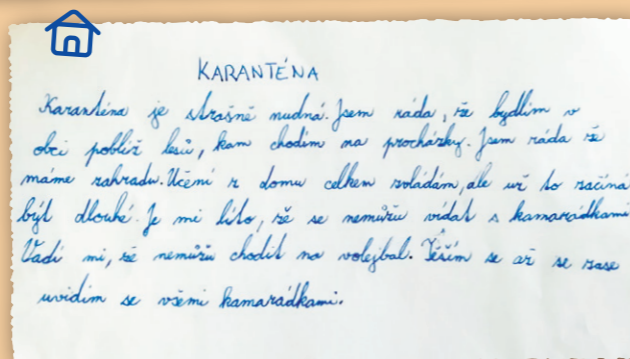 KARANTÉNA
Karanténa je strašně nudná. Jsem ráda, že bydlím v
obci poblíž lesů, kam chodím na procházky. Jsem ráda že
máme zahradu. Učení z domu celkem zvládám, ale už to začíná
být dlouhé. Je mi líto, že se nemůžu vídat s kamarádkami
Vadí mi, že nemůžu chodit na volejbal. Těším se až se zase
uvidím se všemi kamarádkami.